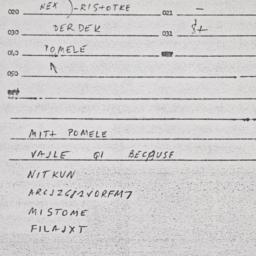 020 NEX )-RISTOTKE 021 —
030 DERDEK 031
040 POMELE
050
MITT POMELE
VAJLE GI BECAUSE
NITKUN
MISTOME
FILAJXT